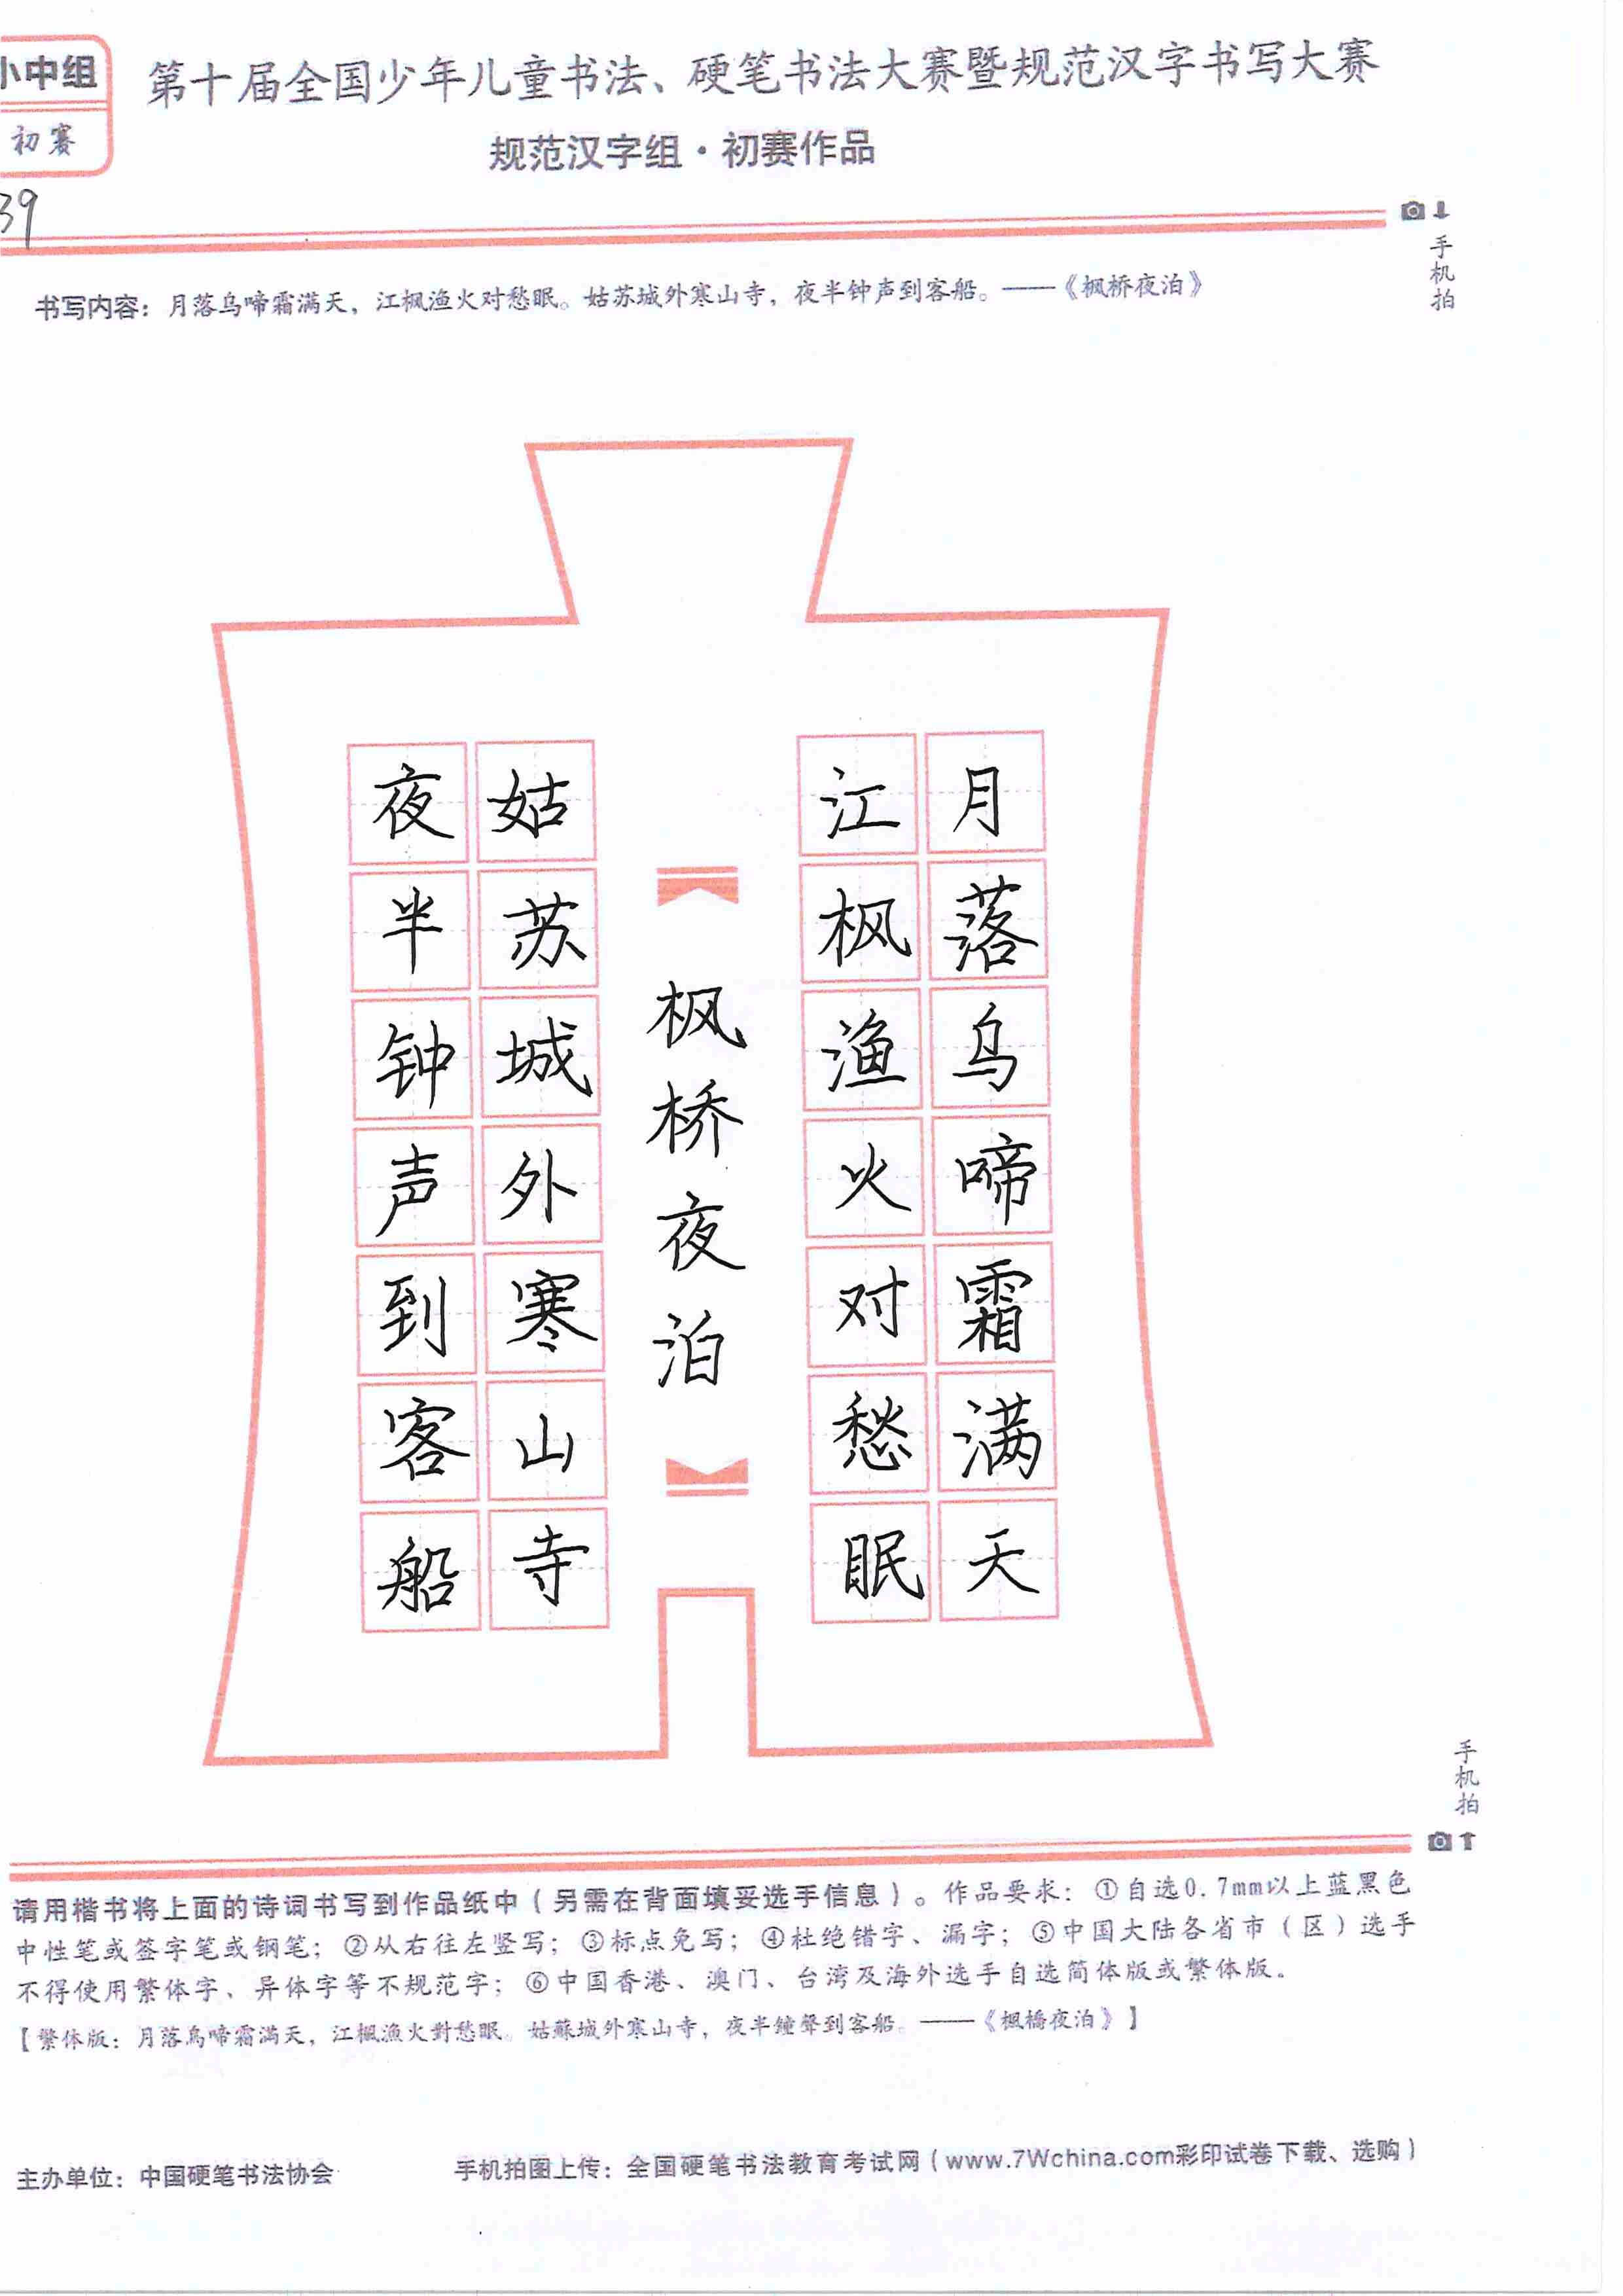 小中组
初赛
第十届全国少年儿童书法、硬笔书法大赛暨规范汉字书写大赛
规范汉字组·初赛作品
39
手机拍
书写内容：月落乌啼霜满天，江枫渔火对愁眠。姑苏城外寒山寺，夜半钟声到客船。——《枫桥夜泊》
月落乌啼霜满天
江枫渔火对愁眠
枫桥夜泊
姑苏城外寒山寺
夜半钟声到客船
手机拍
请用楷书将上面的诗词书写到作品纸中（另需在背面填妥选手信息）。作品要求：①自选0.7mm以上蓝黑色
中性笔或签字笔或钢笔；②从右往左竖写；③标点免写；④杜绝错字、漏字；⑤中国大陆各省市（区）选手
不得使用繁体字、异体字等不规范字；⑥中国香港、澳门、台湾及海外选手自选简体版或繁体版。
【繁体版：月落烏啼霜滿天，江楓漁火對愁眠。姑蘇城外寒山寺，夜半鐘聲到客船。——《楓橋夜泊》】
主办单位：中国硬笔书法协会
手机拍图上传：全国硬笔书法教育考试网（www.7Wchina.com彩印试卷下载、选购）